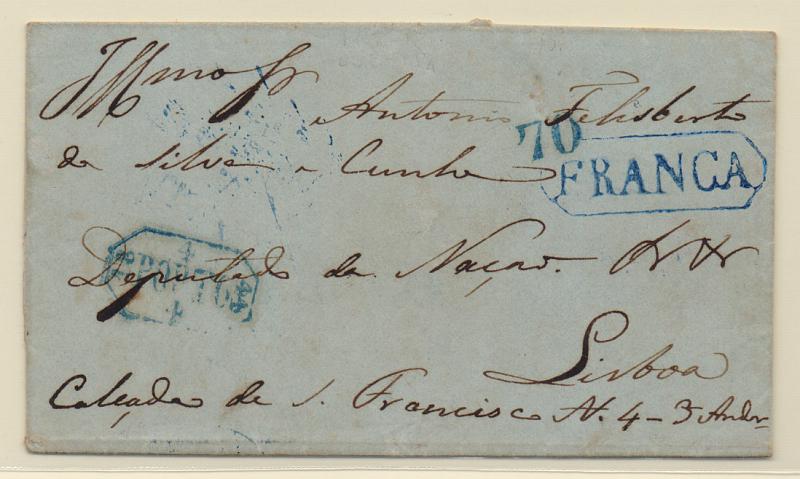 Illmo Sr. Antonio Felisberto
70
da Silva e Cunha
FRANCA
Deputado da Nação.
Lisboa
Calçada de S. Francisco N. 4 - 3 Andr